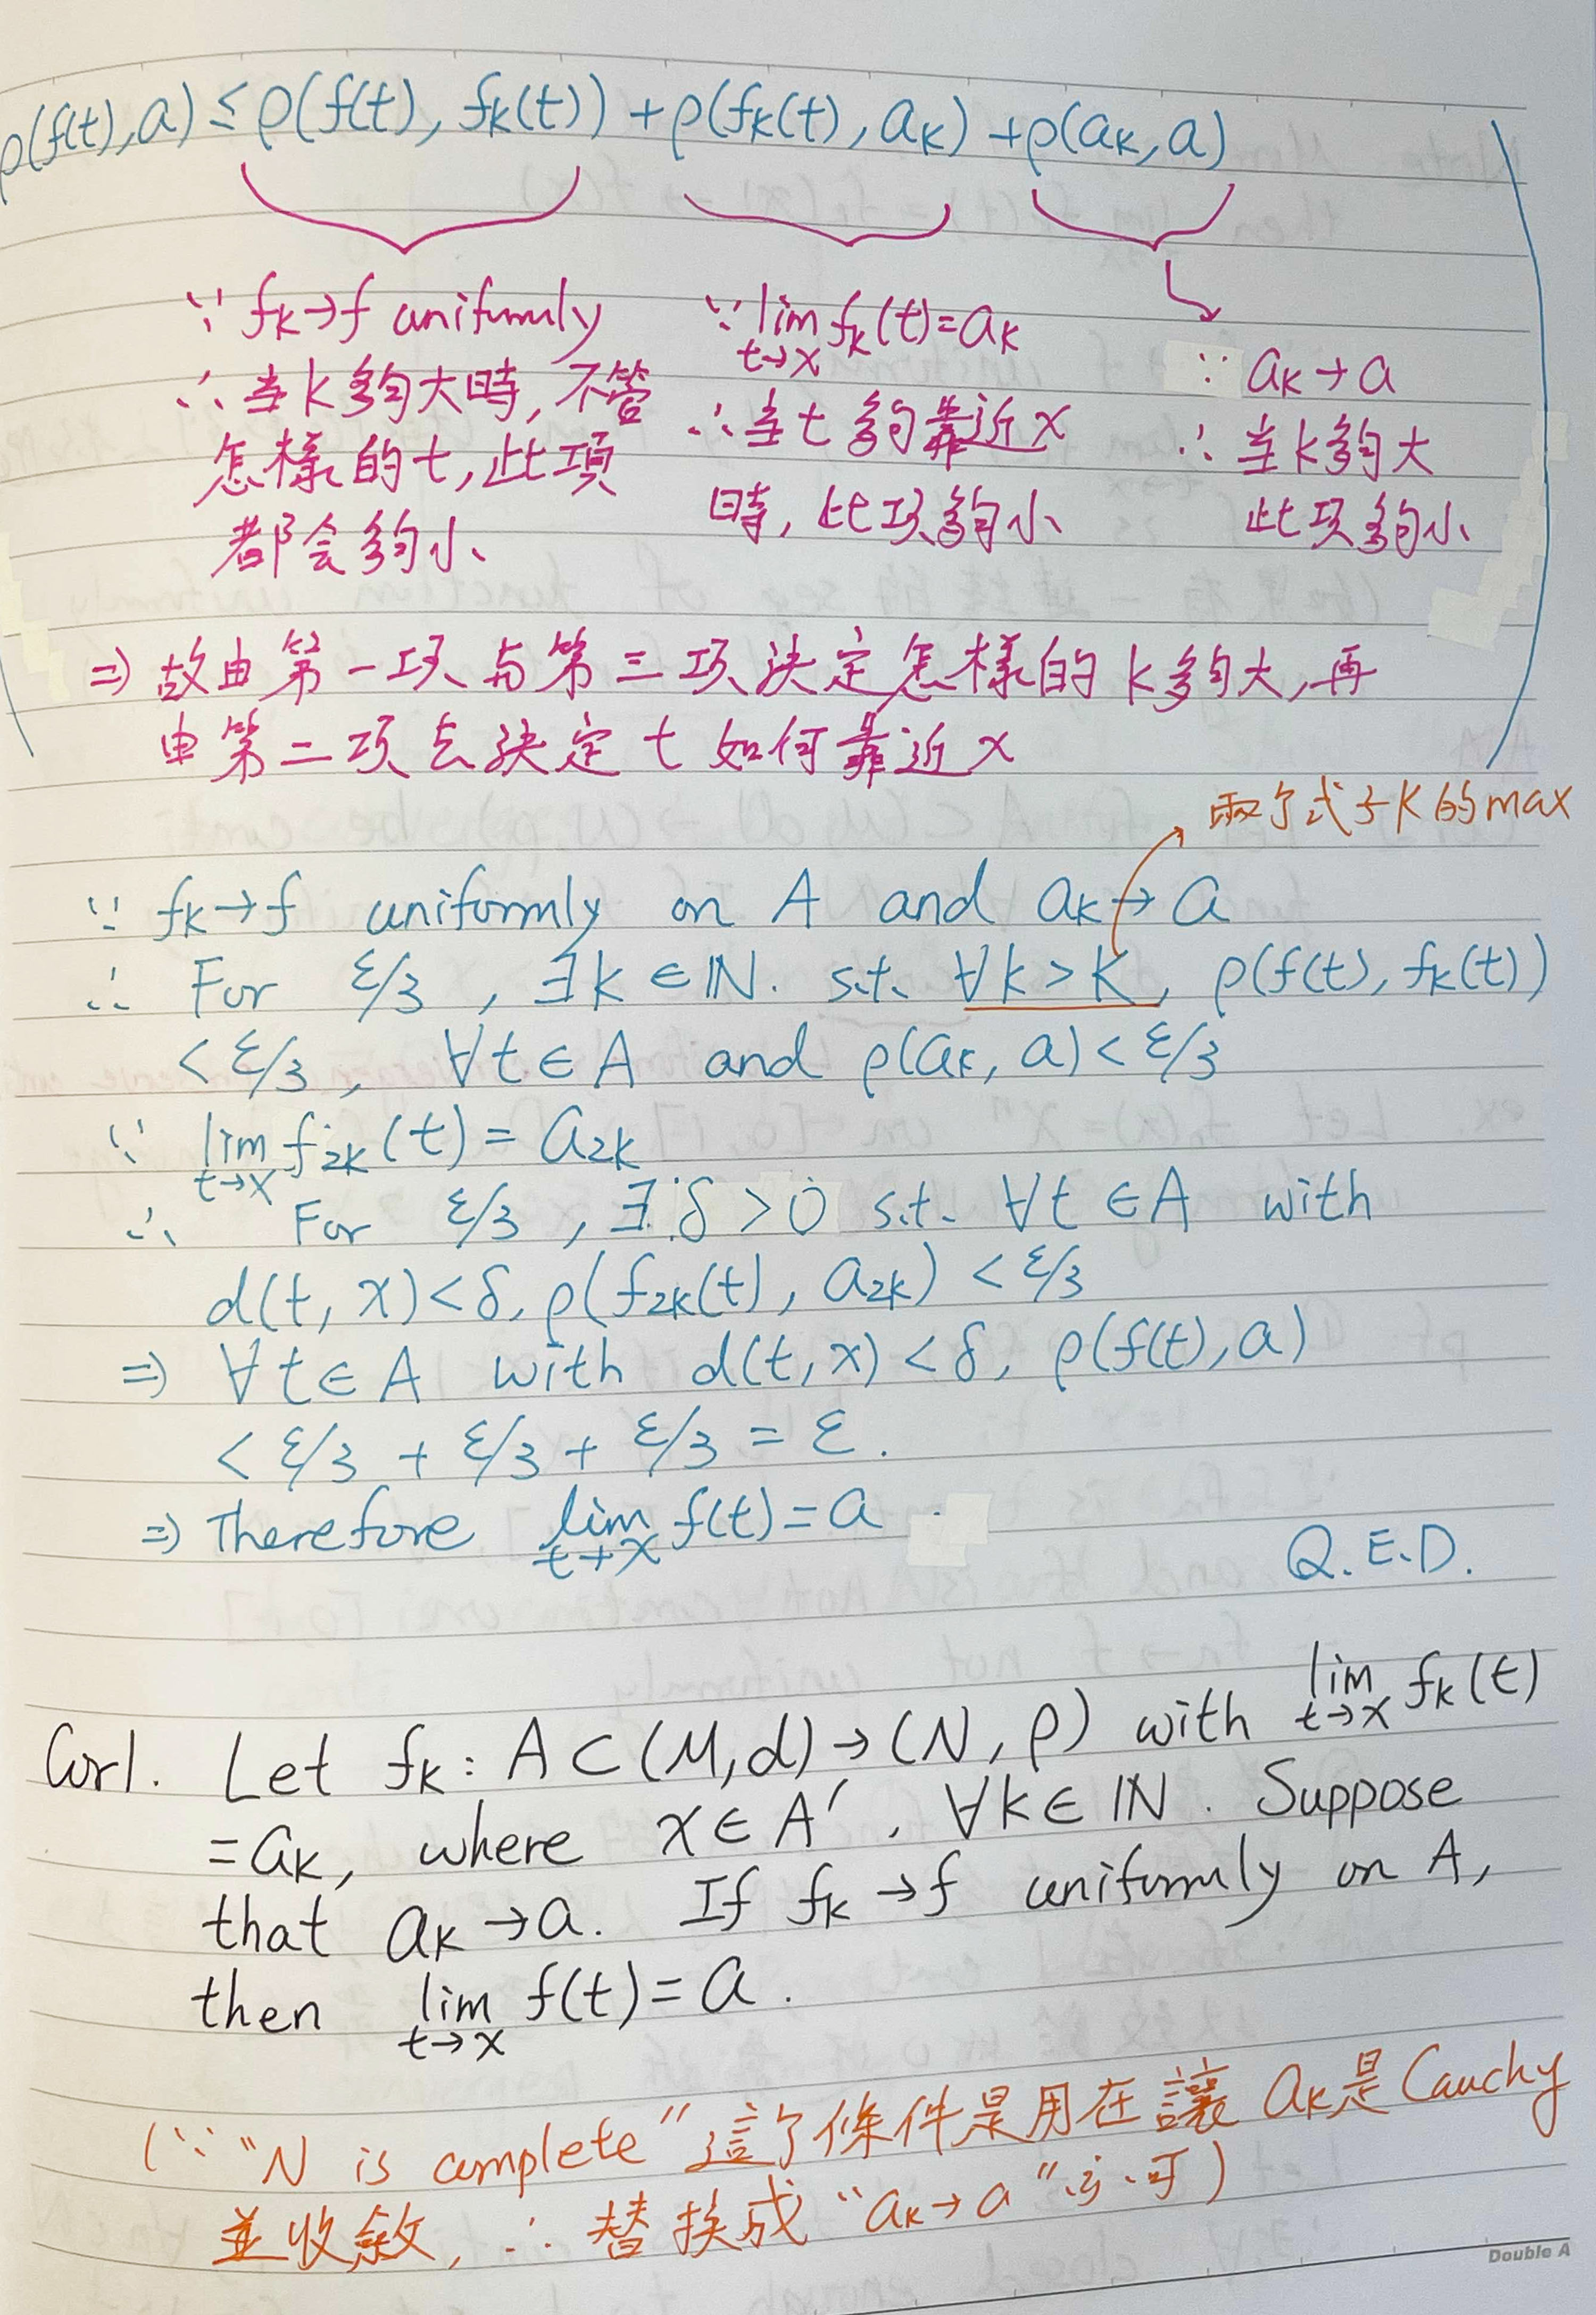 ρ(f(t),a) ≤ ρ(f(t), fk(t)) + ρ(fk(t), ak) + ρ(ak, a)
∵ fk→f uniformly
∴ 当k夠大時, 不管
怎樣的t, 此項
都会夠小
∵ lim t→x fk(t)=ak
∴ 当t夠靠近x
時, 此项夠小
∵ ak→a
∴ 当k夠大
此项夠小
⇒ 故由第一项与第三项決定怎樣的k夠大, 再
由第二项去決定t如何靠近x
兩个式子K的max
∵ fk→f uniformly on A and ak→a
∴ For ε/3, ∃k∈ℕ. s.t. ∀k>K, ρ(f(t), fk(t))
<ε/3, ∀t∈A and ρ(ak, a)<ε/3
∵ lim t→x f2k(t) = a2k
∴ For ε/3, ∃δ>0 s.t. ∀t∈A with
d(t, x)<δ, ρ(f2k(t), a2k) <ε/3
⇒ ∀t∈A with d(t,x)<δ, ρ(f(t),a)
<ε/3 + ε/3 + ε/3 = ε.
⇒ Therefore lim t→x f(t)=a
Q.E.D.
Corl. Let fk: A⊂(M,d)→(N,ρ) with lim t→x fk(t)
=ak, where x∈A′, ∀k∈ℕ. Suppose
that ak→a. If fk→f uniformly on A,
then lim t→x f(t)=a.
(∵ "N is complete" 這个條件是用在讓 ak是Cauchy
並收斂, ∴ 替換成 "ak→a" 亦可)
Double A